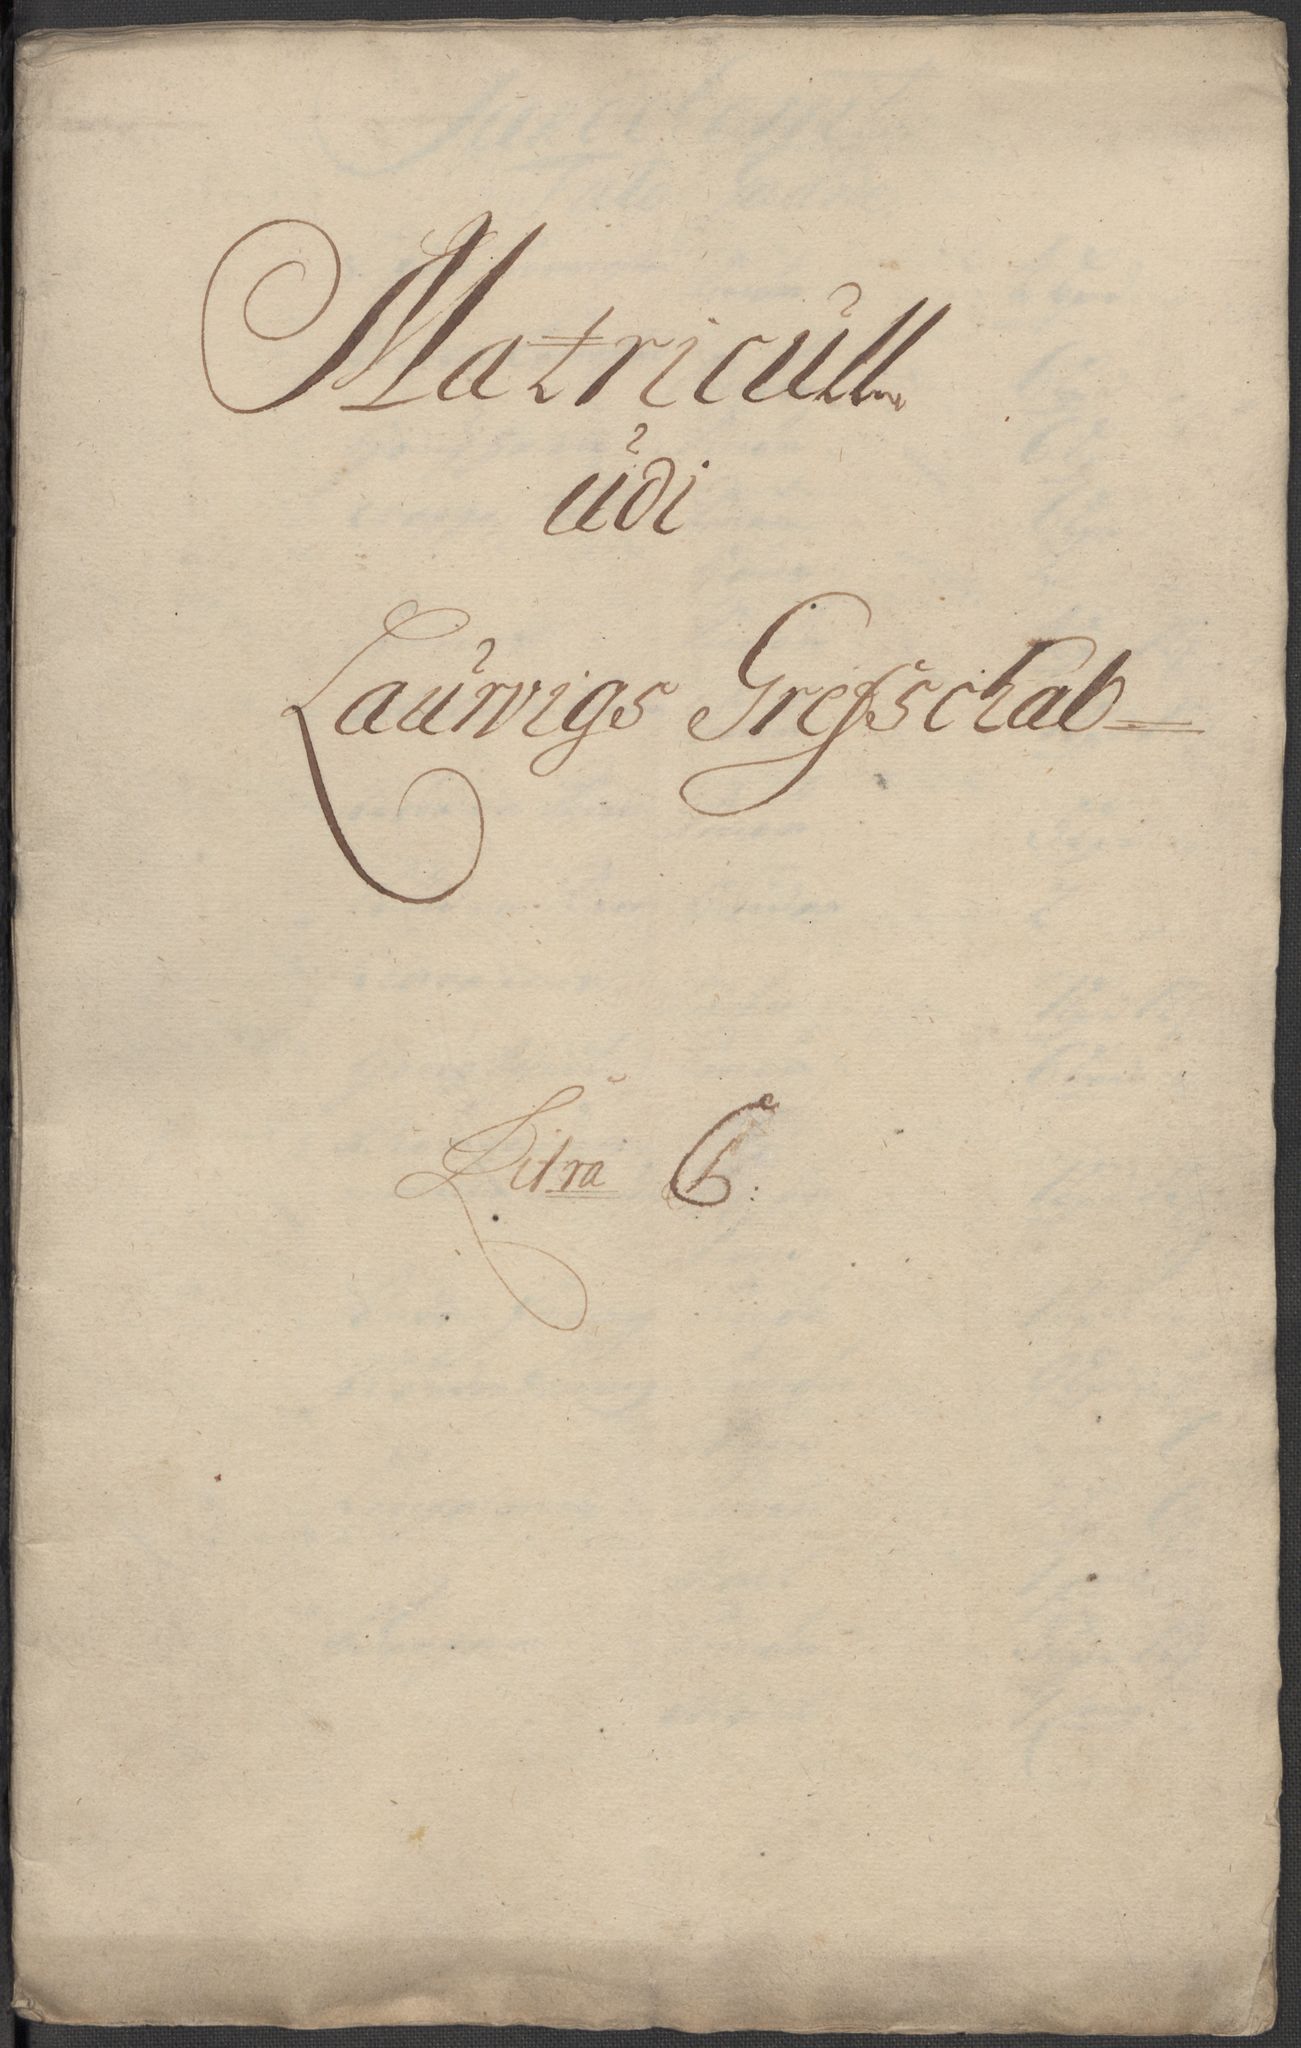 Matricull
udi
Laurvigs Grefschab
Litra C: